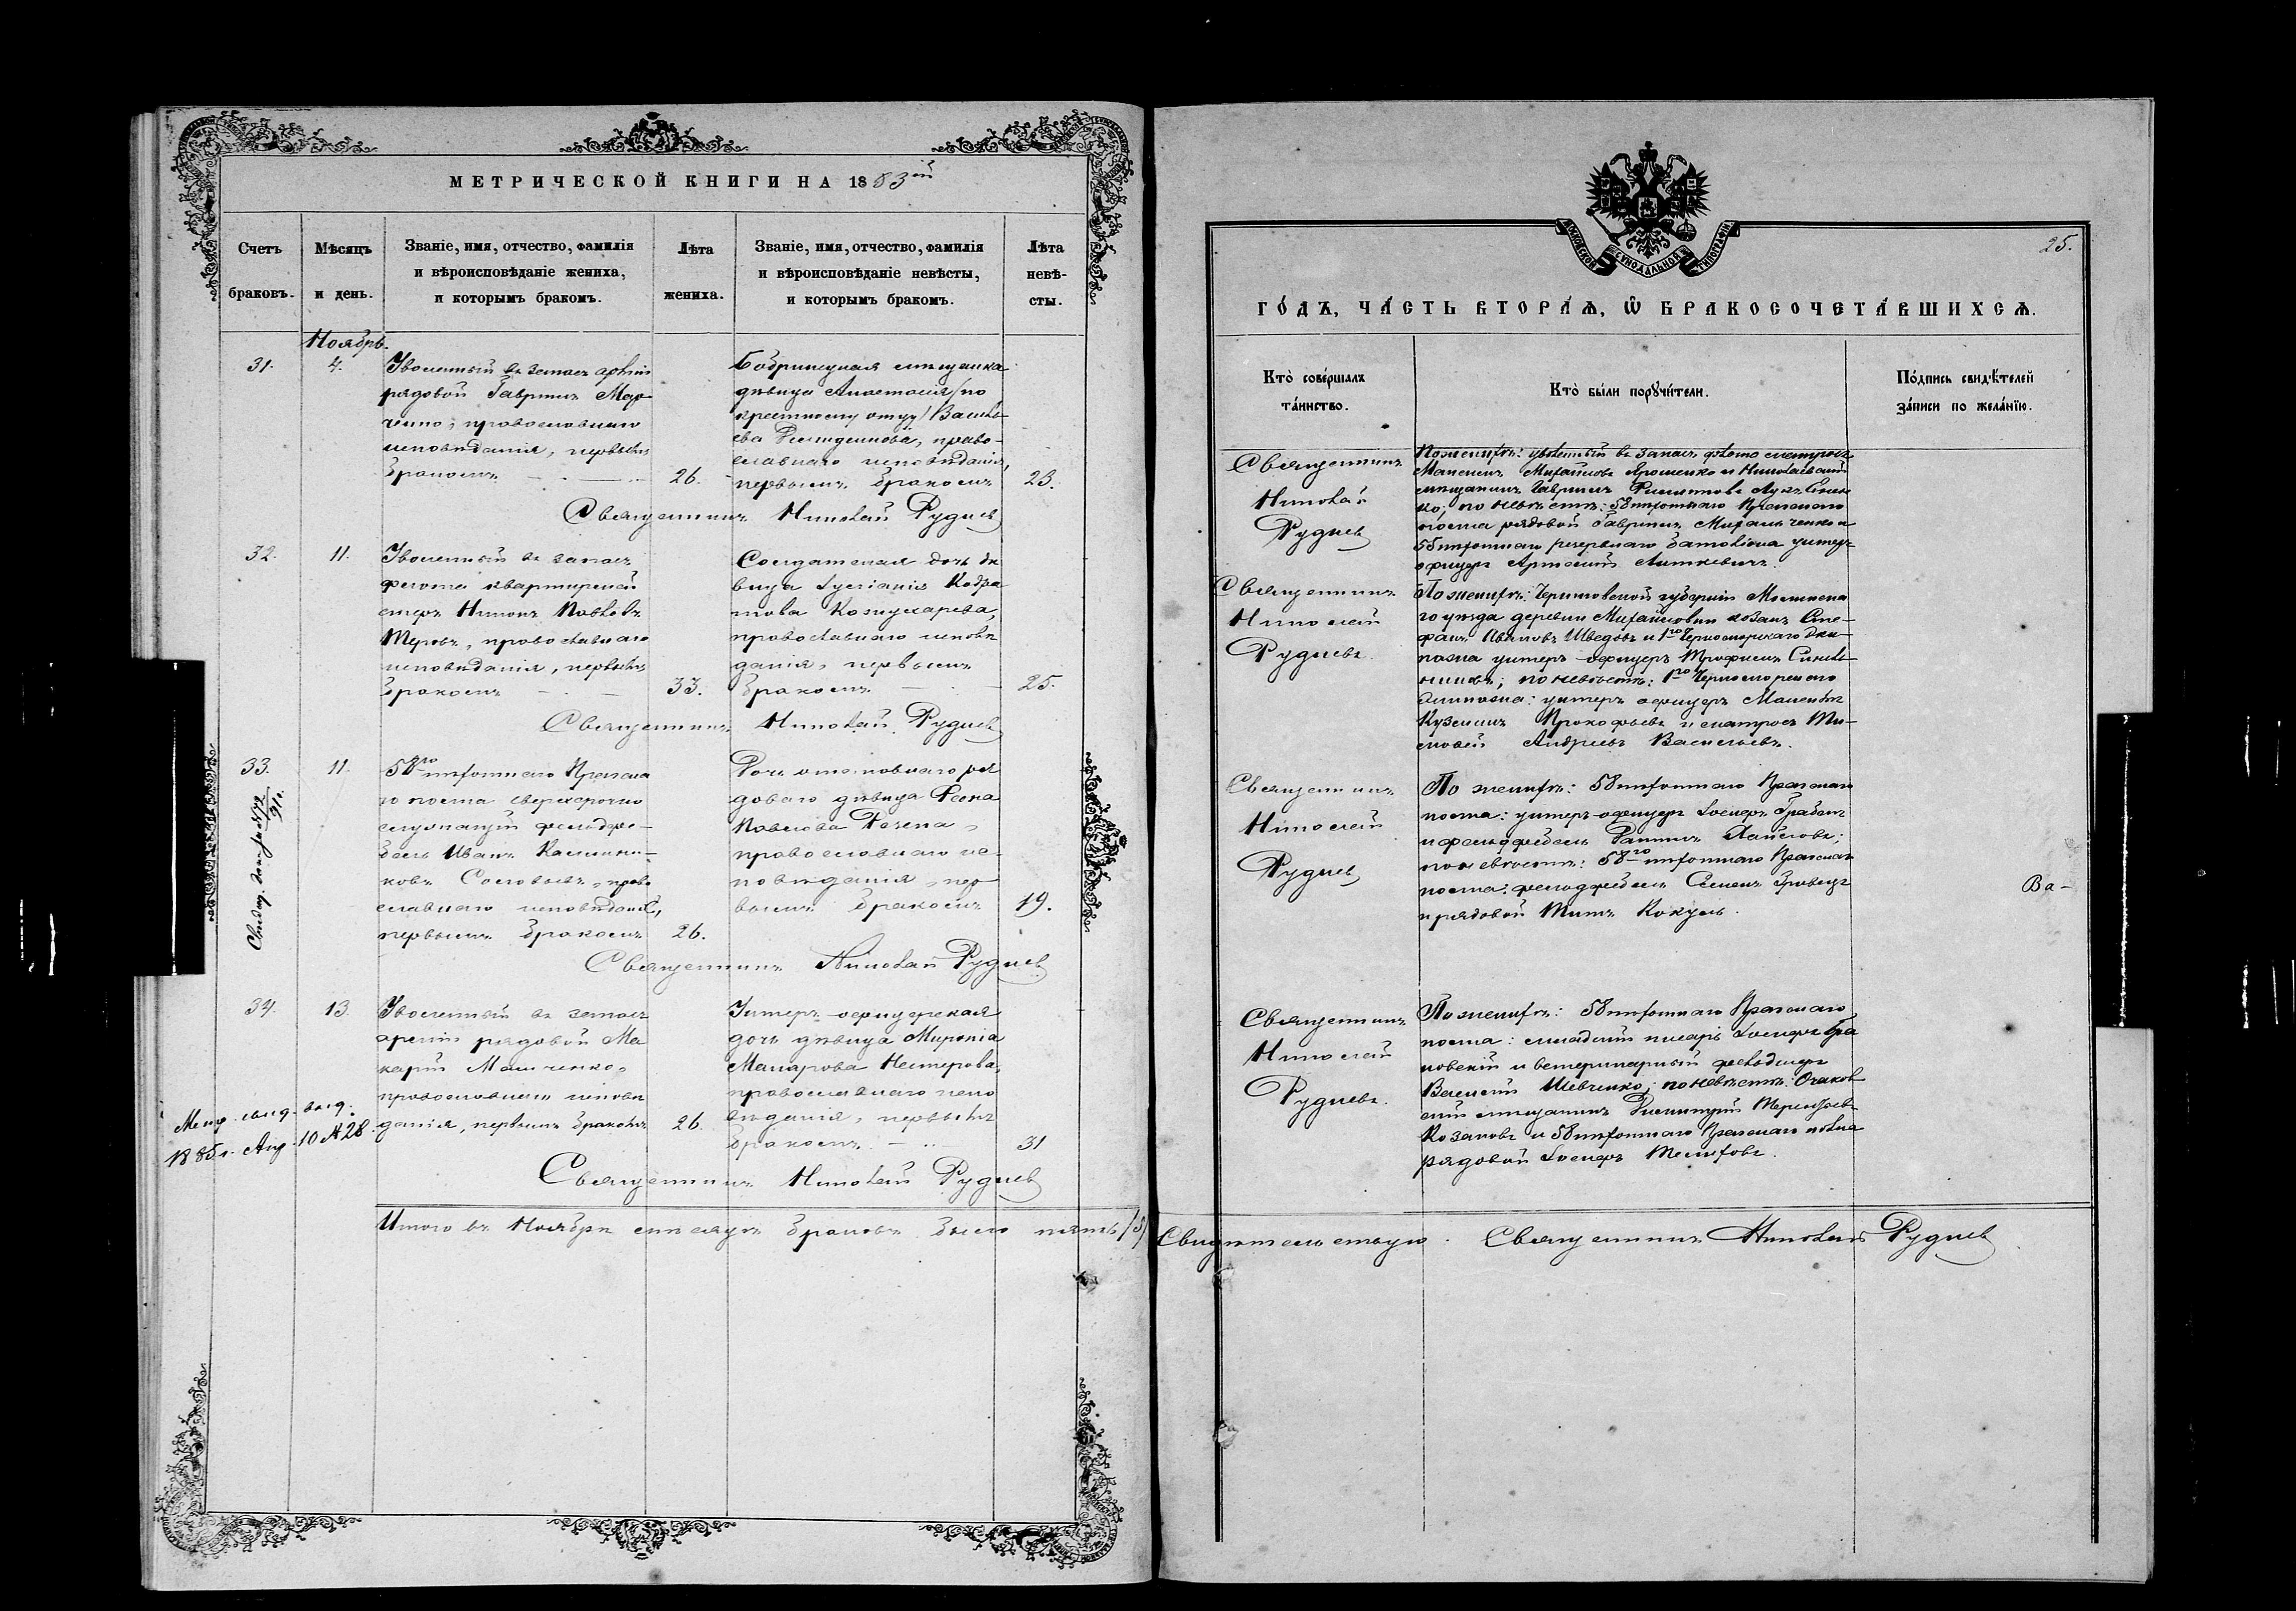 МЕТРИЧЕСКОЙ КНИГИ НА 1883 ій
Счетъ браковъ.
Мѣсяцъ и день.
Званіе, имя, отчество, фамилія
и вѣроисповѣданіе жениха,
и которымъ бракомъ.
Лѣта жениха.
Званіе, имя, отчество, фамилія
и вѣроисповѣданіе невѣсты,
и которымъ бракомъ.
Лѣта невѣ-
сты.
Ноябрь.
31.
4.
Уволенный въ запасъ арміи
рядовой Гавріилъ Мар-
ченко, православнаго
исповѣданія, первымъ
бракомъ
26.
Бобринецкая мѣщанка
дѣвица Анастасія /по
крестному отцу/ Василь-
ева, право-
славнаго исповѣданія,
первымъ бракомъ
23.
Священникъ Николай Рудневъ
32.
11.
Уволенный въ запасъ
флота квартирмей
стеръ Никонъ Павловъ
Теровъ, православнаго
исповѣданія, первымъ
бракомъ
33.
Солдатская дочь дѣ
вица Кодра
това Кожухарева,
православнаго исповѣ
данія, первымъ
бракомъ
25.
Священникъ Николай Рудневъ
33.
11.
58го пѣхотнаго Прагска
го полка сверхсрочно
служащій фельдфе-
бель Иванъ Калинни-
ковъ Соловьевъ, право
славнаго исповѣданія,
первымъ бракомъ
26.
Дочь отставнаго ря
доваго дѣвица Ѳекла
Павлова
православнаго ис-
повѣданія, пер
вымъ бракомъ
19.
Священникъ Николай Рудневъ
34.
13.
Уволенный въ запасъ
арміи рядовой Ма
карій Мамченко,
православнаго исповѣ
данія, первымъ бракомъ
26.
Унтеръ-офицерская
дочь дѣвица Миронія
Макарова Нестерова,
православнаго испо
вѣданія, первымъ
бракомъ
31
Метр. свид. выд.
1885 г. Апр. 10 № 28.
Священникъ Николай Рудневъ
Итого въ Ноябрѣ мѣсяцѣ браковъ было пять /5/
25.
ГОДЪ, ЧАСТЬ ВТОРАЯ, Ѿ БРАКОСОЧЕТАВШИХСЯ.
Кто совершалъ
таинство.
Кто были поручители.
Подпись свидѣтелей
записи по желанію.
Священникъ
Николай
Рудневъ
По женихѣ: уволенный въ запасъ флота матросъ
Максимъ Михайловъ Ярошенко и Николаевскій
мѣщанинъ Гавріилъ Филипповъ
по невѣстѣ: 58 пѣхотнаго Прагскаго
полка рядовой Гавріилъ Михальченко и
55 пѣхотнаго резервнаго баталіона унтеръ-
офицеръ Артемій
Священникъ
Николай
Рудневъ.
По женихѣ: Черниговской губерніи
го уѣзда деревни Михайловки козакъ Сте-
фанъ Ивановъ Шведовъ и 1го Черноморскаго эки-
пажа унтеръ-офицеръ Трофимъ
по невѣстѣ: 1го Черноморскаго
экипажа: унтеръ офицеръ
Кузьминъ Прокофьевъ и матросъ Ти-
мофей Андреевъ Васильевъ.
Священникъ
Николай
Рудневъ
По женихѣ: 58 пѣхотнаго Прагскаго
полка: унтеръ-офицеръ Іосифъ
и фельдфебель
по невѣстѣ: 58го пѣхотнаго Прагскаго
полка: фельдфебель Семенъ
и рядовой Титъ Кокуль.
Ва-
Священникъ
Николай
Рудневъ.
По женихѣ: 58 пѣхотнаго Прагскаго
полка: младшій писарь Іосифъ
новскій и ветеринарный фельдшеръ
Василій Шевченко; по невѣстѣ: Очаков
скій мѣщанинъ Димитрій Терентьевъ
Козаковъ и 58 пѣхотнаго Прагскаго полка
рядовой Іосифъ
Свидѣтельствую. Священникъ Николай Рудневъ